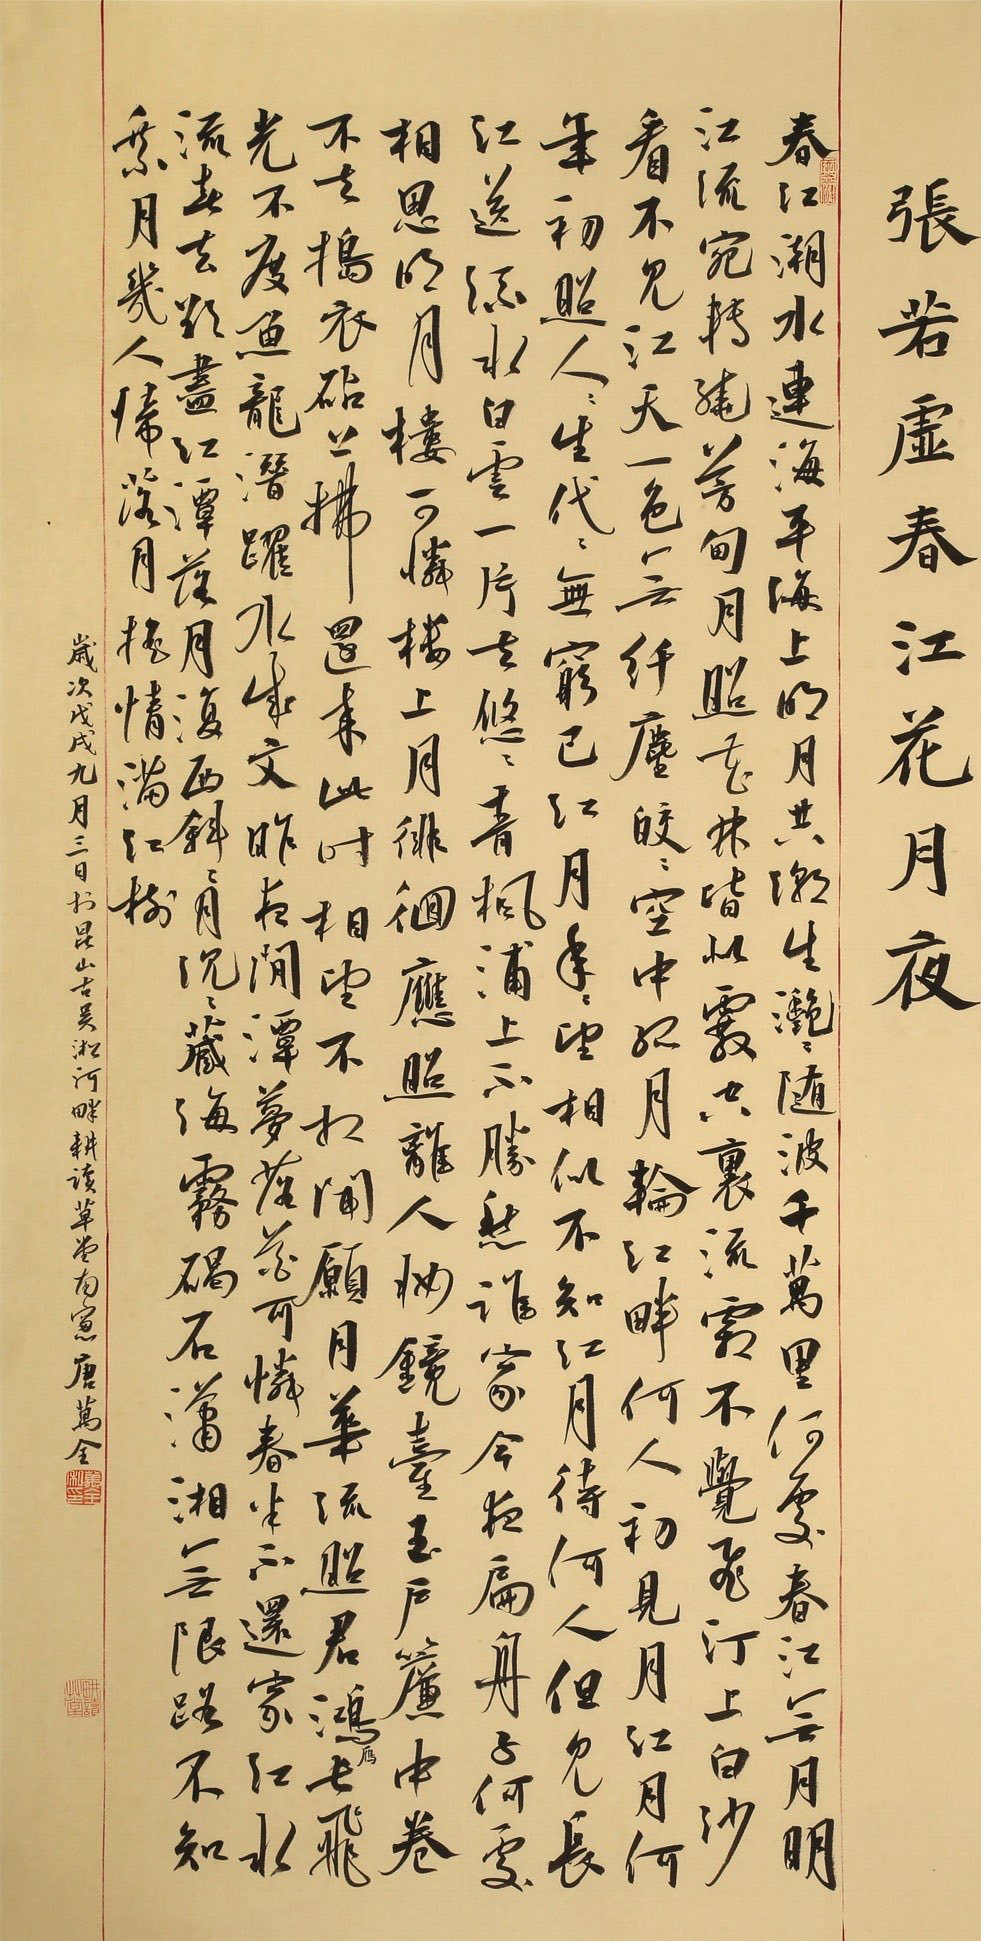 張若虛春江花月夜
春江潮水連海平海上明月共潮生灩〻随波千萬里何處春江無月明
江流宛轉繞芳甸月照花林皆似霰空裏流霜不覺飛汀上白沙
看不見江天一色無纤塵皎〻空中孤月輪江畔何人初見月江月何
年初照人〻生代〻無窮已江月年〻望相似不知江月待何人但見長
江送流水白雲一片去悠〻青楓浦上不勝愁誰家今夜扁舟子何處
相思明月樓可憐楼上月徘徊應照離人妝鏡臺玉戶簾中卷
不去搗衣砧上拂還來此时相望不相聞願月華流照君鴻雁長飛
光不度魚龍潛躍水成文昨夜閒潭夢落花可憐春半不還家江水
流春去欲盡江潭落月復西斜〻月沉〻藏海霧碣石瀟湘無限路不知
乘月幾人歸落月搖情滿江樹
歲次戊戌九月三日於昆山古吴淞河畔耕读草堂南窗唐萬全